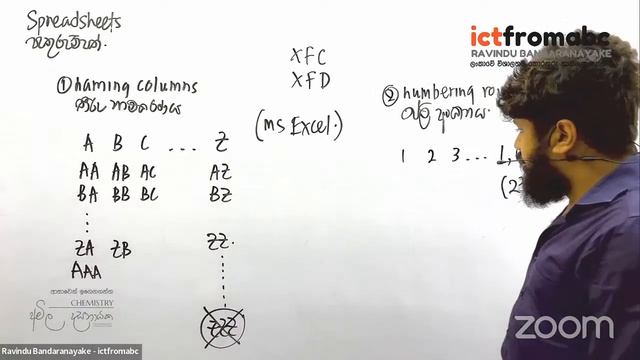 Spreadsheets
පැතුරුම්පත්.
① naming columns
තීරු නාමකරණය
A B C ... Z
AA AB AC AZ
BA BB BC BZ
ZA ZB ZZ.
AAA
ZZZ
XFC
XFD
(MS Excel.)
② numbering
පේළි අංකනය.
1 2 3 ... 1,
ictfromabc
RAVINDU BANDARANAYAKE
CHEMISTRY
zoom
Ravindu Bandaranayake - ictfromabc